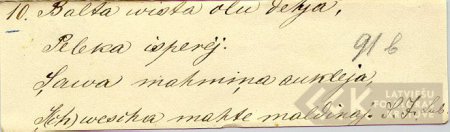 10. Balta wista olu dehja,
Peleka isperēj. 91 b
Sawa mahmiņa aukleja,
(Sch)wescha mahte maldinaj.
LATVIEŠU